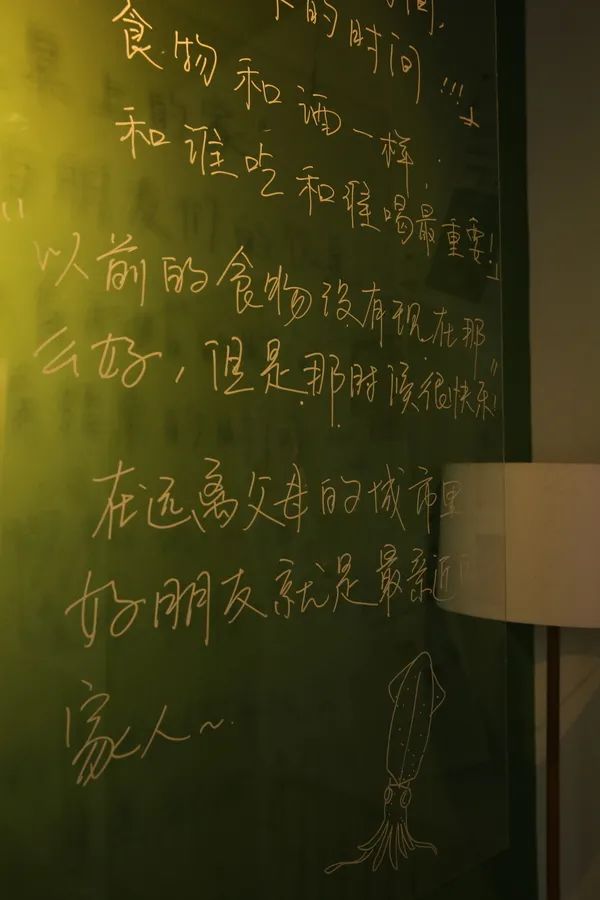 下的时间,
食物和酒一样.
和谁吃和谁喝最重要!」
“以前的食物没有现在那
么好,但是那时候很快乐!”
在远离父母的城市里
好朋友就是最亲近的
家人~.